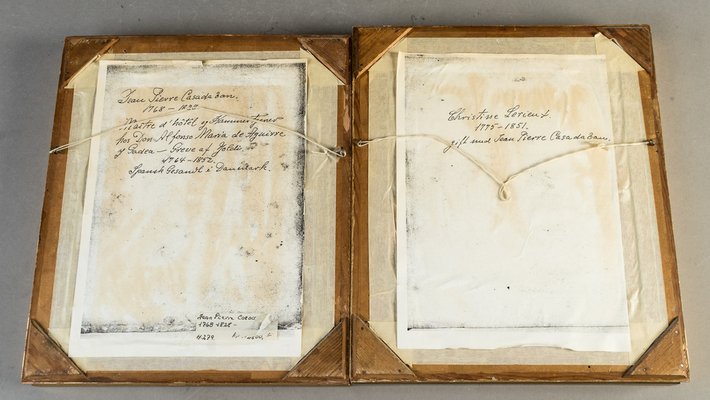 Jean Pierre Casadaban.
1768 – 1833
Maitre d'hôtel og Kammertjener
hos Don Alfonso Maria de Aguirre
y Gadea – Greve af
1764 – 1852.
Spansk Gesandt i Danmark.
Jean Pierre
1768
4279
Christine Lorieux.
1775 – 1851.
gift med Jean Pierre Casadaban